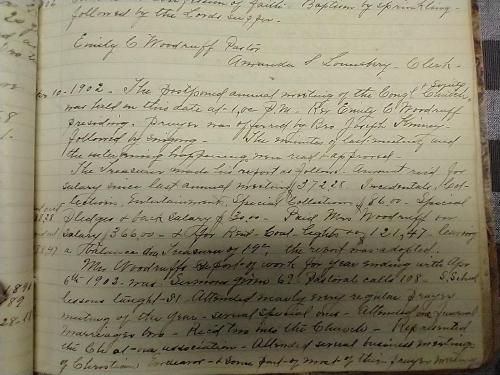 of Faith. Baptism by Sprinkling
followed by the Lords Supper.
Emily C Woodruff Pastor
Amanda S Lounsbry - Clerk -
10 - 1902 - The postponed annual meeting of the Congl Church Society
was held on this date at 1,00 P.M. Rev Emily C Woodruff
presiding. Prayer was offered by Bro Joseph Kinney
followed by singing. The minutes of last meeting and
the intervening happenings were read & approved.
The Treasurer made his report as follows. Amount paid for
salary since last annual meeting 372.28. Incidentals, Col-
lections, Entertainment, Special Collections, 86.00. Special
Pledges & back Salary Paid Mrs Woodruff on
salary 366,00 - & for Rent - Coal - Lights &c 121,47 leaving
a Balance due Treasurer of 19¢. the report was adopted.
Mrs Woodruffs Report of work for year ending with Apr
6th 1903 was Sermons given 69 Pastoral calls 108 - S. School
lessons taught 31 Attended nearly every regular prayer
meeting of the year - several special ones - Attended one funeral
Marriages two - Rec'd two into the Church - Represented
the Ch at one association - Attended several business meetings
of Christian Endeavor - & some part of most of their prayer meetings